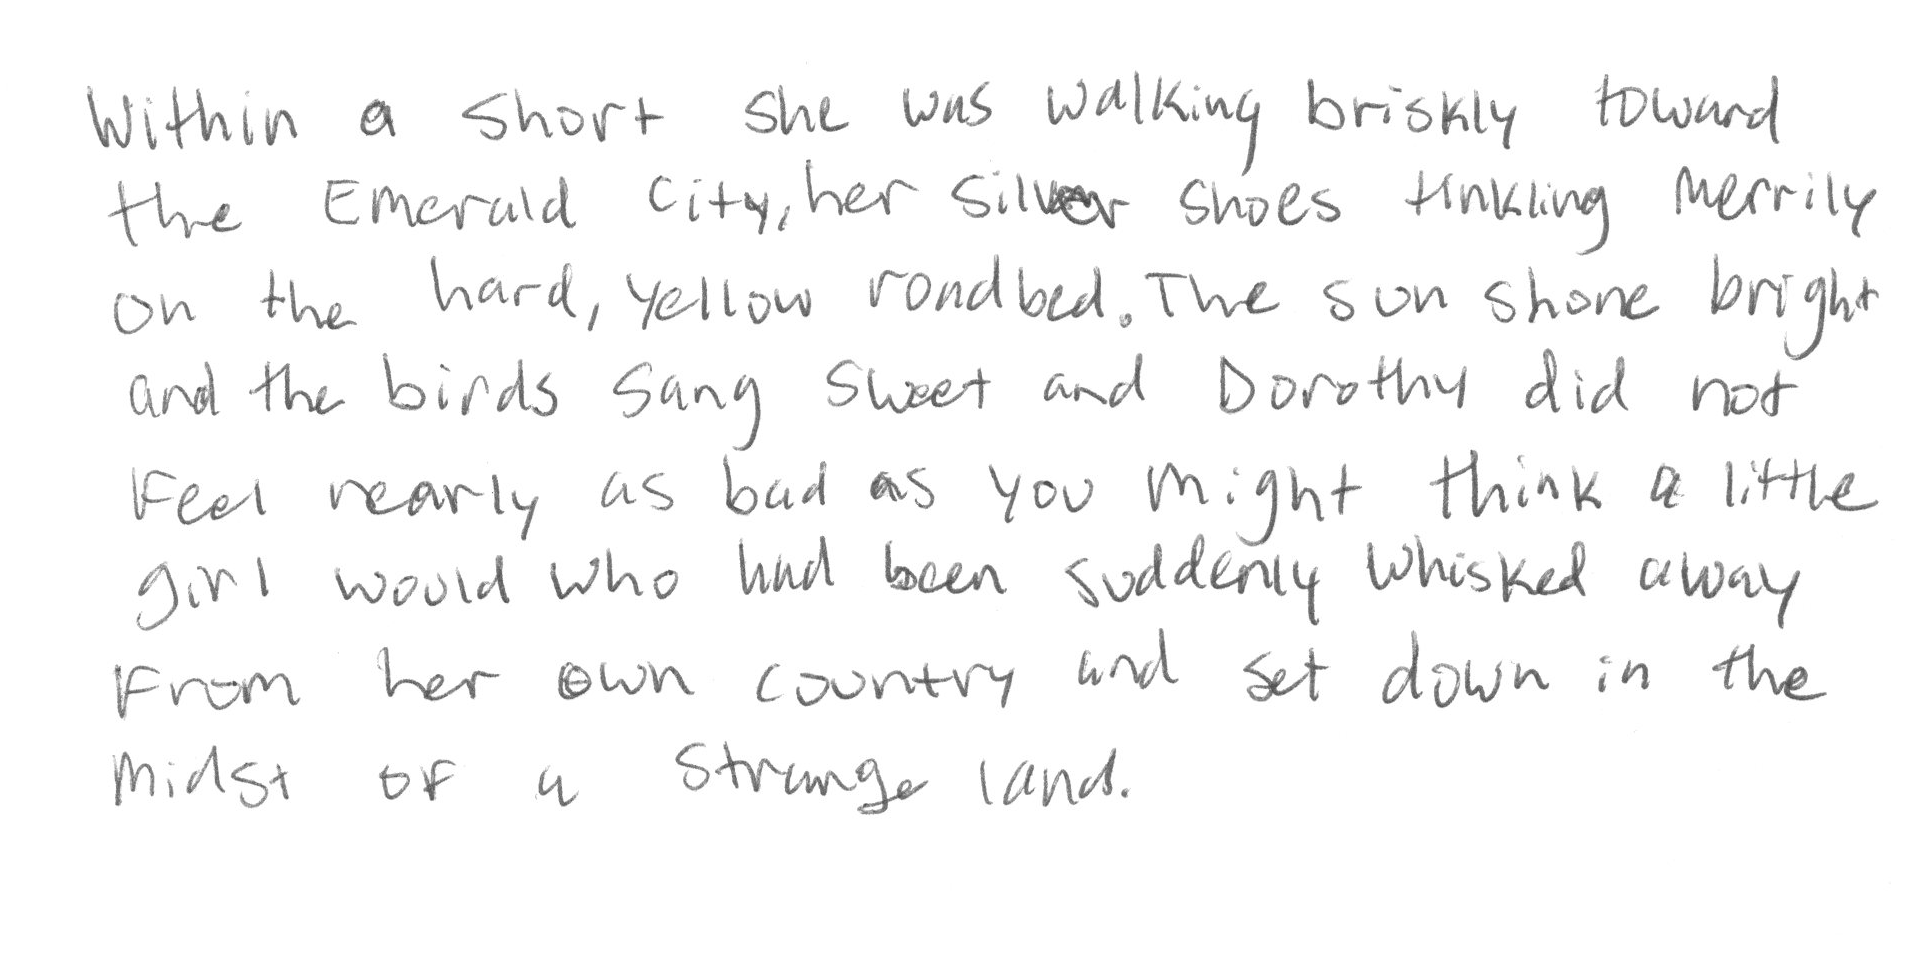 Within a short she was walking briskly toward
the Emerald City, her silver shoes tinkling merrily
on the hard, yellow roadbed. The sun shone bright
and the birds sang sweet and Dorothy did not
feel nearly as bad as you might think a little
girl would who had been suddenly whisked away
from her own country and set down in the
midst of a strange land.